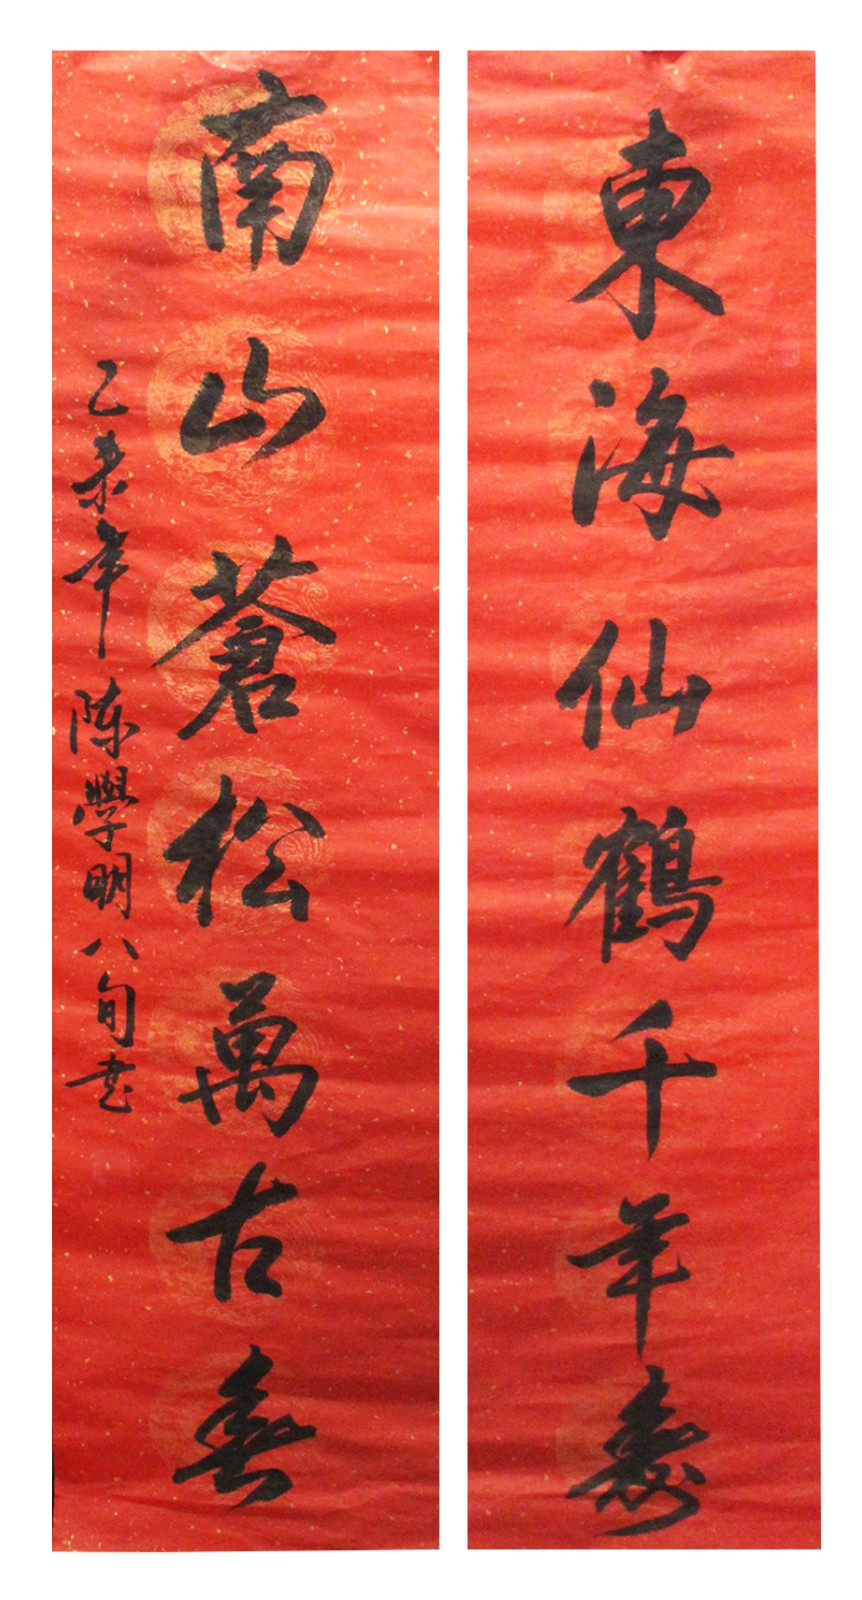 東海仙鶴千年壽
南山蒼松萬古春
乙未年 陈學明八旬书